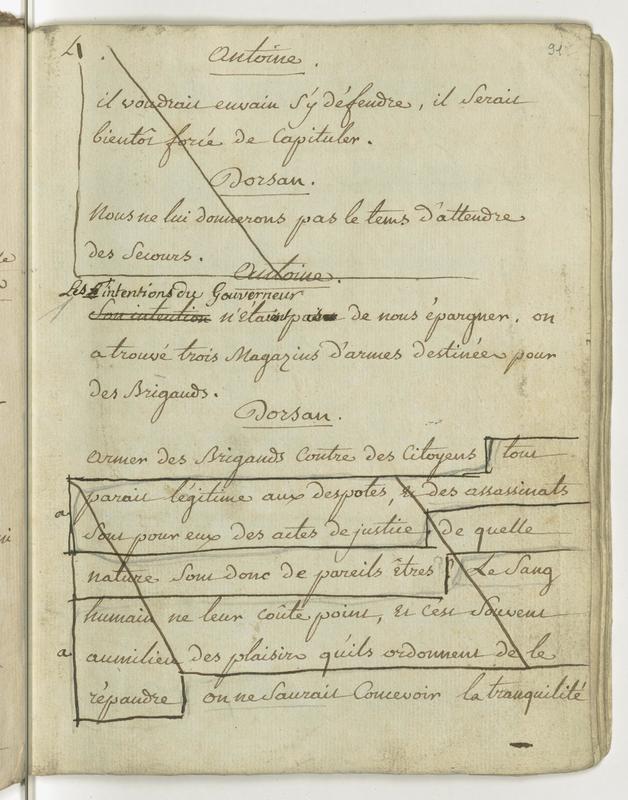 91
Antoine.
il voudrait envain s'y défendre, il serait
bientôt forcé de Capituler.
Dorsan.
Nous ne lui donnerons pas le tems d'attendre
des Secours.
Antoine.
Les intentions du Gouverneur
Son intention n'étaient pas de nous épargner. on
a trouvé trois Magazins d'armes destinées pour
des Brigands.
Dorsan.
Armer des Brigands Contre des Citoyens tout
parait légitime aux despotes, et des assassinats
a
Sont pour eux des actes de justice, de quelle
nature Sont donc de pareils êtres? Le Sang
humain ne leur coûte point, Et c'est Souvent
a
aumilieu des plaisirs qu'ils ordonnent de le
répandre on ne Saurait Concevoir la tranquilité